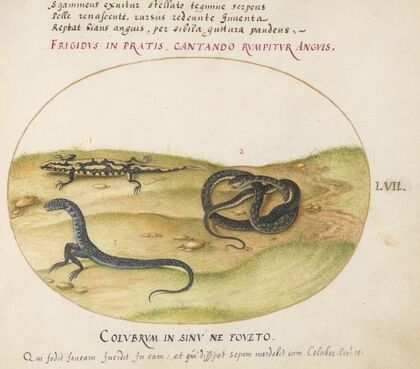 Squameus exuitur stellato tegmine serpens
Pelle renascente, rursus redeunte Juventa
Reptat hians anguis, per sibila guttura pandens.
FRIGIDVS IN PRATIS, CANTANDO RVMPITVR ANGVIS.
1
2
LVII.
3
COLVBRVM IN SINV NE FOVETO.
Qui fodit foueam Incidit In eam: et qui dissipat sepem mordebit eum Coluber. Eccl 10